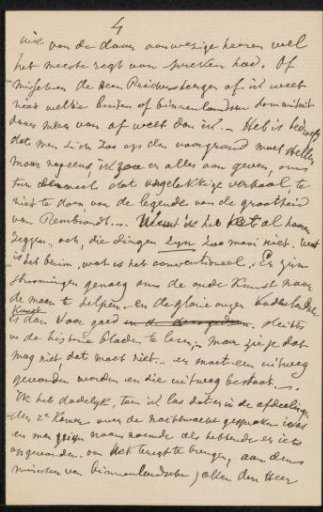 4
wie van de daar aanwezige heeren wel
het meeste regt van spreken had. Of
misschien de heer Reichensberger of ik weet
niet welke buiten of binnenlandsche
daar meer van af weet dan ik. Het is
dat men zich zoo op den voorgrond moet stellen
maar nageen, ik zou er alles aan geven, om
dat ongelukkige verhaal, te
niet te doen, van de legende van de grootheid
van Rembrandt. Want ik heb het al hooren
zeggen, och, die dingen zyn zoo mooi niet. wat
is het bruin, wat is het conventioneel. Er zijn
stroomingen genoeg om de oude Kunst naar
de maan te helpen. en de glorie onzer vaderlandsche
Kunst is dan voor goed slechts
in de historie bladen te lezen, maar zie je dat
mag niet, dat moet niet. er moet een uitweg
gevonden worden en die uitweg bestaat.
Ik heb dadelijk, toen ik las dat er in de afdeelingen
der 2e Kamer over de nachtwacht gesproken was
en men mijn naam noemde als hebbende er iets
op gevonden. om het teregt te brengen, aan den
minister van binnenlandsche zaken den Heer